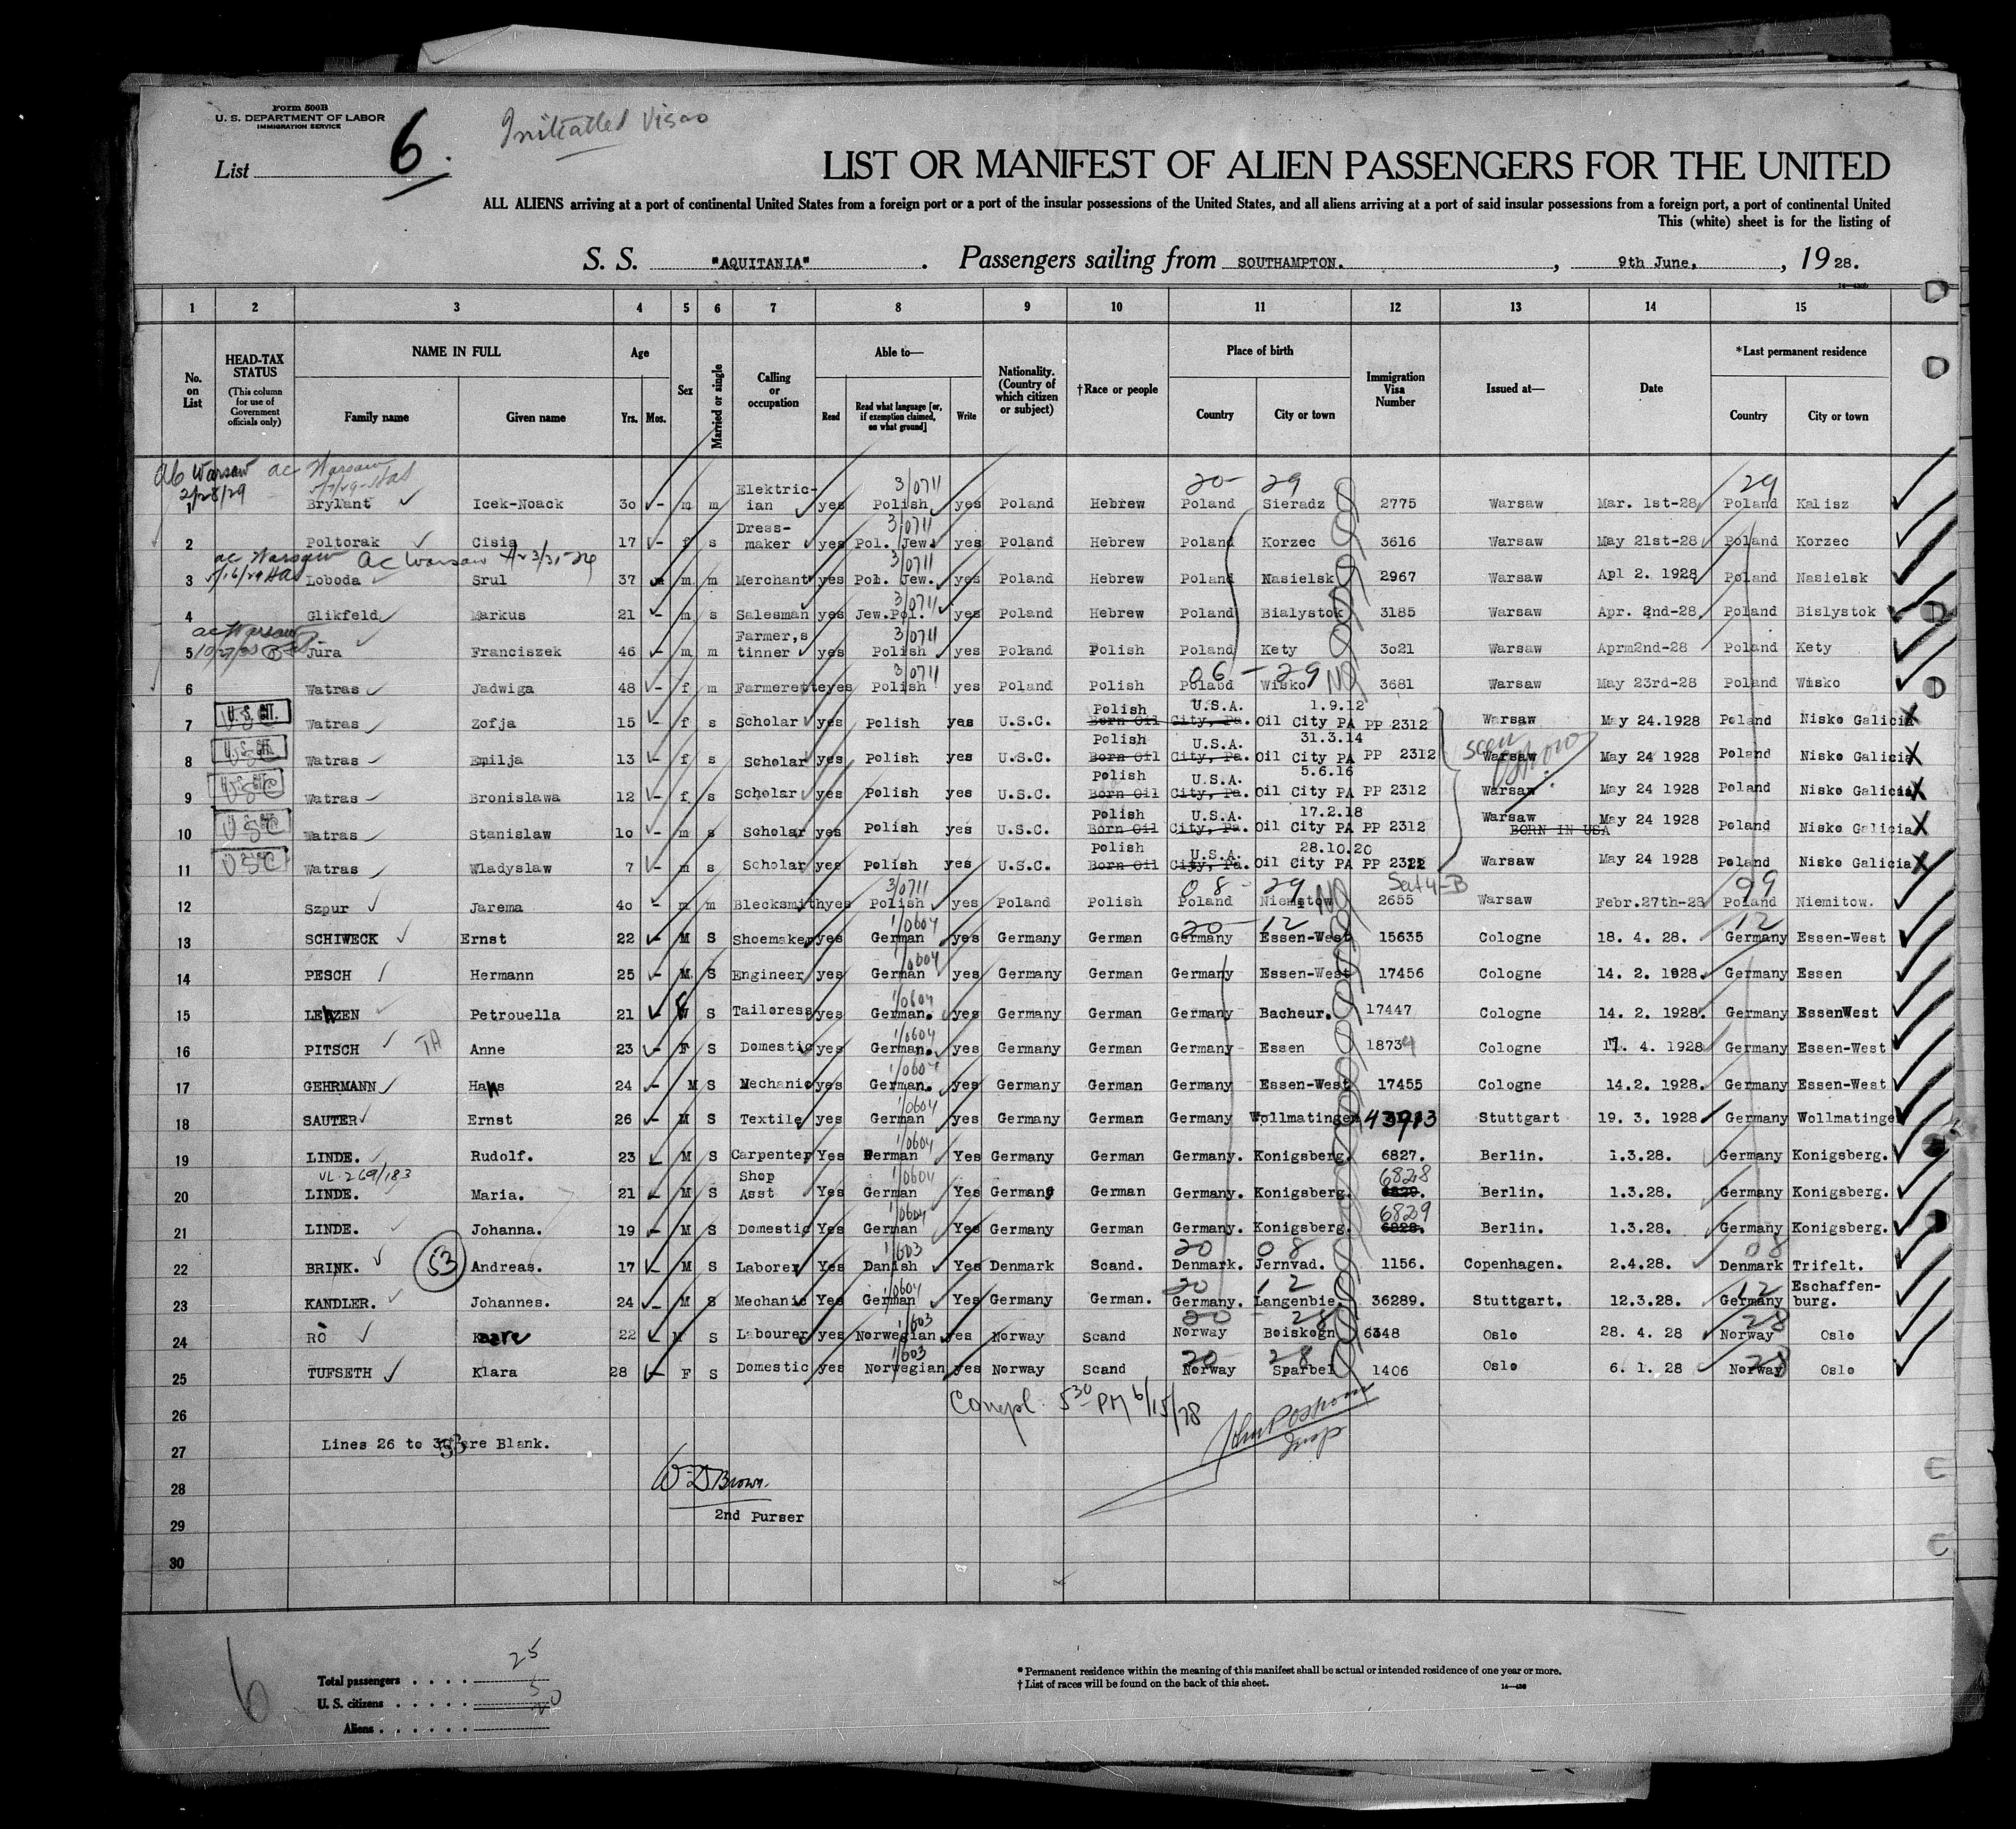 Form 500B
U. S. DEPARTMENT OF LABOR
IMMIGRATION SERVICE
List 6.
Initialled Visas
LIST OR MANIFEST OF ALIEN PASSENGERS FOR THE UNITED
ALL ALIENS arriving at a port of continental United States from a foreign port or a port of the insular possessions of the United States, and all aliens arriving at a port of said insular possessions from a foreign port, a port of continental United
This (white) sheet is for the listing of
S. S. "AQUITANIA" . Passengers sailing from SOUTHAMPTON. , 9th June, , 19 28.
1 2 3 4 5 6 7 8 9 10 11 12 13 14 15
No. on List
HEAD-TAX STATUS (This column for use of Government officials only)
NAME IN FULL
Family name Given name
Age
Yrs. Mos.
Sex
Married or single
Calling or occupation
Able to—
Read Read what language [or, if exemption claimed, on what ground] Write
Nationality. (Country of which citizen or subject)
†Race or people
Place of birth
Country City or town
Immigration Visa Number
Issued at—
Date
*Last permanent residence
Country City or town
ac Warsaw
2/28/29
20- 29 29
1 Brylant Icek-Noack 30 - m m Elektric-ian yes Polish 3/0711 yes Poland Hebrew Poland Sieradz 2775 Warsaw Mar. 1st-28 Poland Kalisz
2 Poltorak Cisia 17 - f s Dress-maker yes Pol. Jew. 3/0711 yes Poland Hebrew Poland Korzec 3616 Warsaw May 21st-28 Poland Korzec
ac Warsaw
3 Loboda Srul 37 m m Merchant yes Pol. Jew. 3/0711 yes Poland Hebrew Poland Nasielsk 2967 Warsaw Apl 2. 1928 Poland Nasielsk
4 Glikfeld Markus 21 - m s Salesman yes Jew.Pol. 3/0711 yes Poland Hebrew Poland Bialystok 3185 Warsaw Apr. 2nd-28 Poland Bislystok
ac Warsaw
5 Jura Franciszek 46 - m m Farmer,s tinner yes Polish 3/0711 yes Poland Polish Poland Kety 3021 Warsaw Aprm2nd-28 Poland Kety
06 - 29 NQ
6 Watras Jadwiga 48 - f m Farmerette yes Polish 3/0711 yes Poland Polish Polabd Wisko 3681 Warsaw May 23rd-28 Poland Wisko
7 U.S. CIT. Watras Zofja 15 - f s Scholar yes Polish yes U.S.C. Polish Born Oil City, Pa. U.S.A. 1.9.12 Oil City PA PP 2312 Warsaw May 24.1928 Poland Nisko Galicia X
8 U.S. CIT. USC Watras Emilja 13 - f s Scholar yes Polish yes U.S.C. Polish Born Oil City, Pa. U.S.A. 31.3.14 Oil City PA PP 2312 Warsaw May 24 1928 Poland Nisko Galicia X
9 USC Watras Bronislawa 12 - f s Scholar yes Polish yes U.S.C. Polish Born Oil City, Pa. U.S.A. 5.6.16 Oil City PA PP 2312 Warsaw May 24 1928 Poland Nisko Galicia X
10 USC Watras Stanislaw 1o - m s Scholar yes Polish yes U.S.C. Polish Born Oil City, Pa. U.S.A. 17.2.18 Oil City PA PP 2312 Warsaw BORN IN USA May 24 1928 Poland Nisko Galicia X
11 USC Watras Wladyslaw 7 - m s Scholar yes Polish yes U.S.C. Polish Born Oil City, Pa. U.S.A. 28.10.20 Oil City PA PP 2312 Warsaw May 24 1928 Poland Nisko Galicia X
08 - 29 NQ
12 Szpur Jarema 4o - m m Blecksmith yes Polish 3/0711 yes Poland Polish Poland Niemstow 2655 Warsaw Febr.27th-28 Poland Niemitow.
20 - 12 12
13 SCHIWECK Ernst 22 - M S Shoemaker yes German 1/0604 yes Germany German Germany Essen-West 15635 Cologne 18. 4. 28. Germany Essen-West
14 PESCH Hermann 25 - M S Engineer yes German 1/0604 yes Germany German Germany Essen-West 17456 Cologne 14. 2. 1928. Germany Essen
15 LENZEN Petrouella 21 F S Tailoress yes German. 1/0604 yes Germany German Germany Bacheur. 17447 Cologne 14. 2. 1928. Germany EssenWest
16 PITSCH TA Anne 23 - F S Domestic yes German. 1/0604 yes Germany German Germany Essen 18734 Cologne 17. 4. 1928 Germany Essen-West
17 GEHRMANN Hans 24 - M S Mechanic yes German. 1/0604 yes Germany German Germany Essen-West 17455 Cologne 14.2. 1928. Germany Essen-West
18 SAUTER Ernst 26 - M S Textile yes German 1/0604 yes Germany German Germany Wollmatingen Stuttgart 19. 3. 1928 Germany Wollmatinge
19 LINDE. Rudolf. 23 M S Carpenter Yes German 1/0604 Yes Germany German Germany. Konigsberg. 6827. Berlin. 1.3.28. Germany Konigsberg.
VL 269/183
20 LINDE. Maria. 21 - M S Shop Asst Yes German 1/0604 Yes Germany German Germany. Konigsberg. 6828 6829. Berlin. 1.3.28. Germany Konigsberg.
21 LINDE. Johanna. 19 - M S Domestic Yes German 1/0604 Yes Germany German Germany. Konigsberg. 6829 6828. Berlin. 1.3.28. Germany Konigsberg.
20 08 08
22 BRINK. 53 Andreas. 17 - M S Laborer Yes Danish 1/603 Yes Denmark Scand. Denmark. Jernvad. 1156. Copenhagen. 2.4.28. Denmark Trifelt.
20 12 12
23 KANDLER. Johannes. 24 - M S Mechanic Yes German 1/0604 Yes Germany German. Germany. Langenbie. 36289. Stuttgart. 12.3.28. Germany Eschaffen-burg.
20 - 28 28
24 RÖ Kaare 22 M S Labourer yes Norwegian 1/603 Yes Norway Scand Norway Beiskogn 6348 Oslo 28. 4. 28 Norway Oslo
20 28 28
25 TUFSETH Klara 28 - F S Domestic yes Norwegian 1/603 yes Norway Scand Norway Sparbel 1406 Oslo 6. 1. 28 Norway Oslo
Compl. 5 30 PM 6/15/28
26
27 Lines 26 to 30 are Blank.
28 W. D Brown.
29 2nd Purser
30
6
Total passengers . . . . . 25
U. S. citizens . . . . . 5
Aliens . . . . . . 20
* Permanent residence within the meaning of this manifest shall be actual or intended residence of one year or more.
† List of races will be found on the back of this sheet.